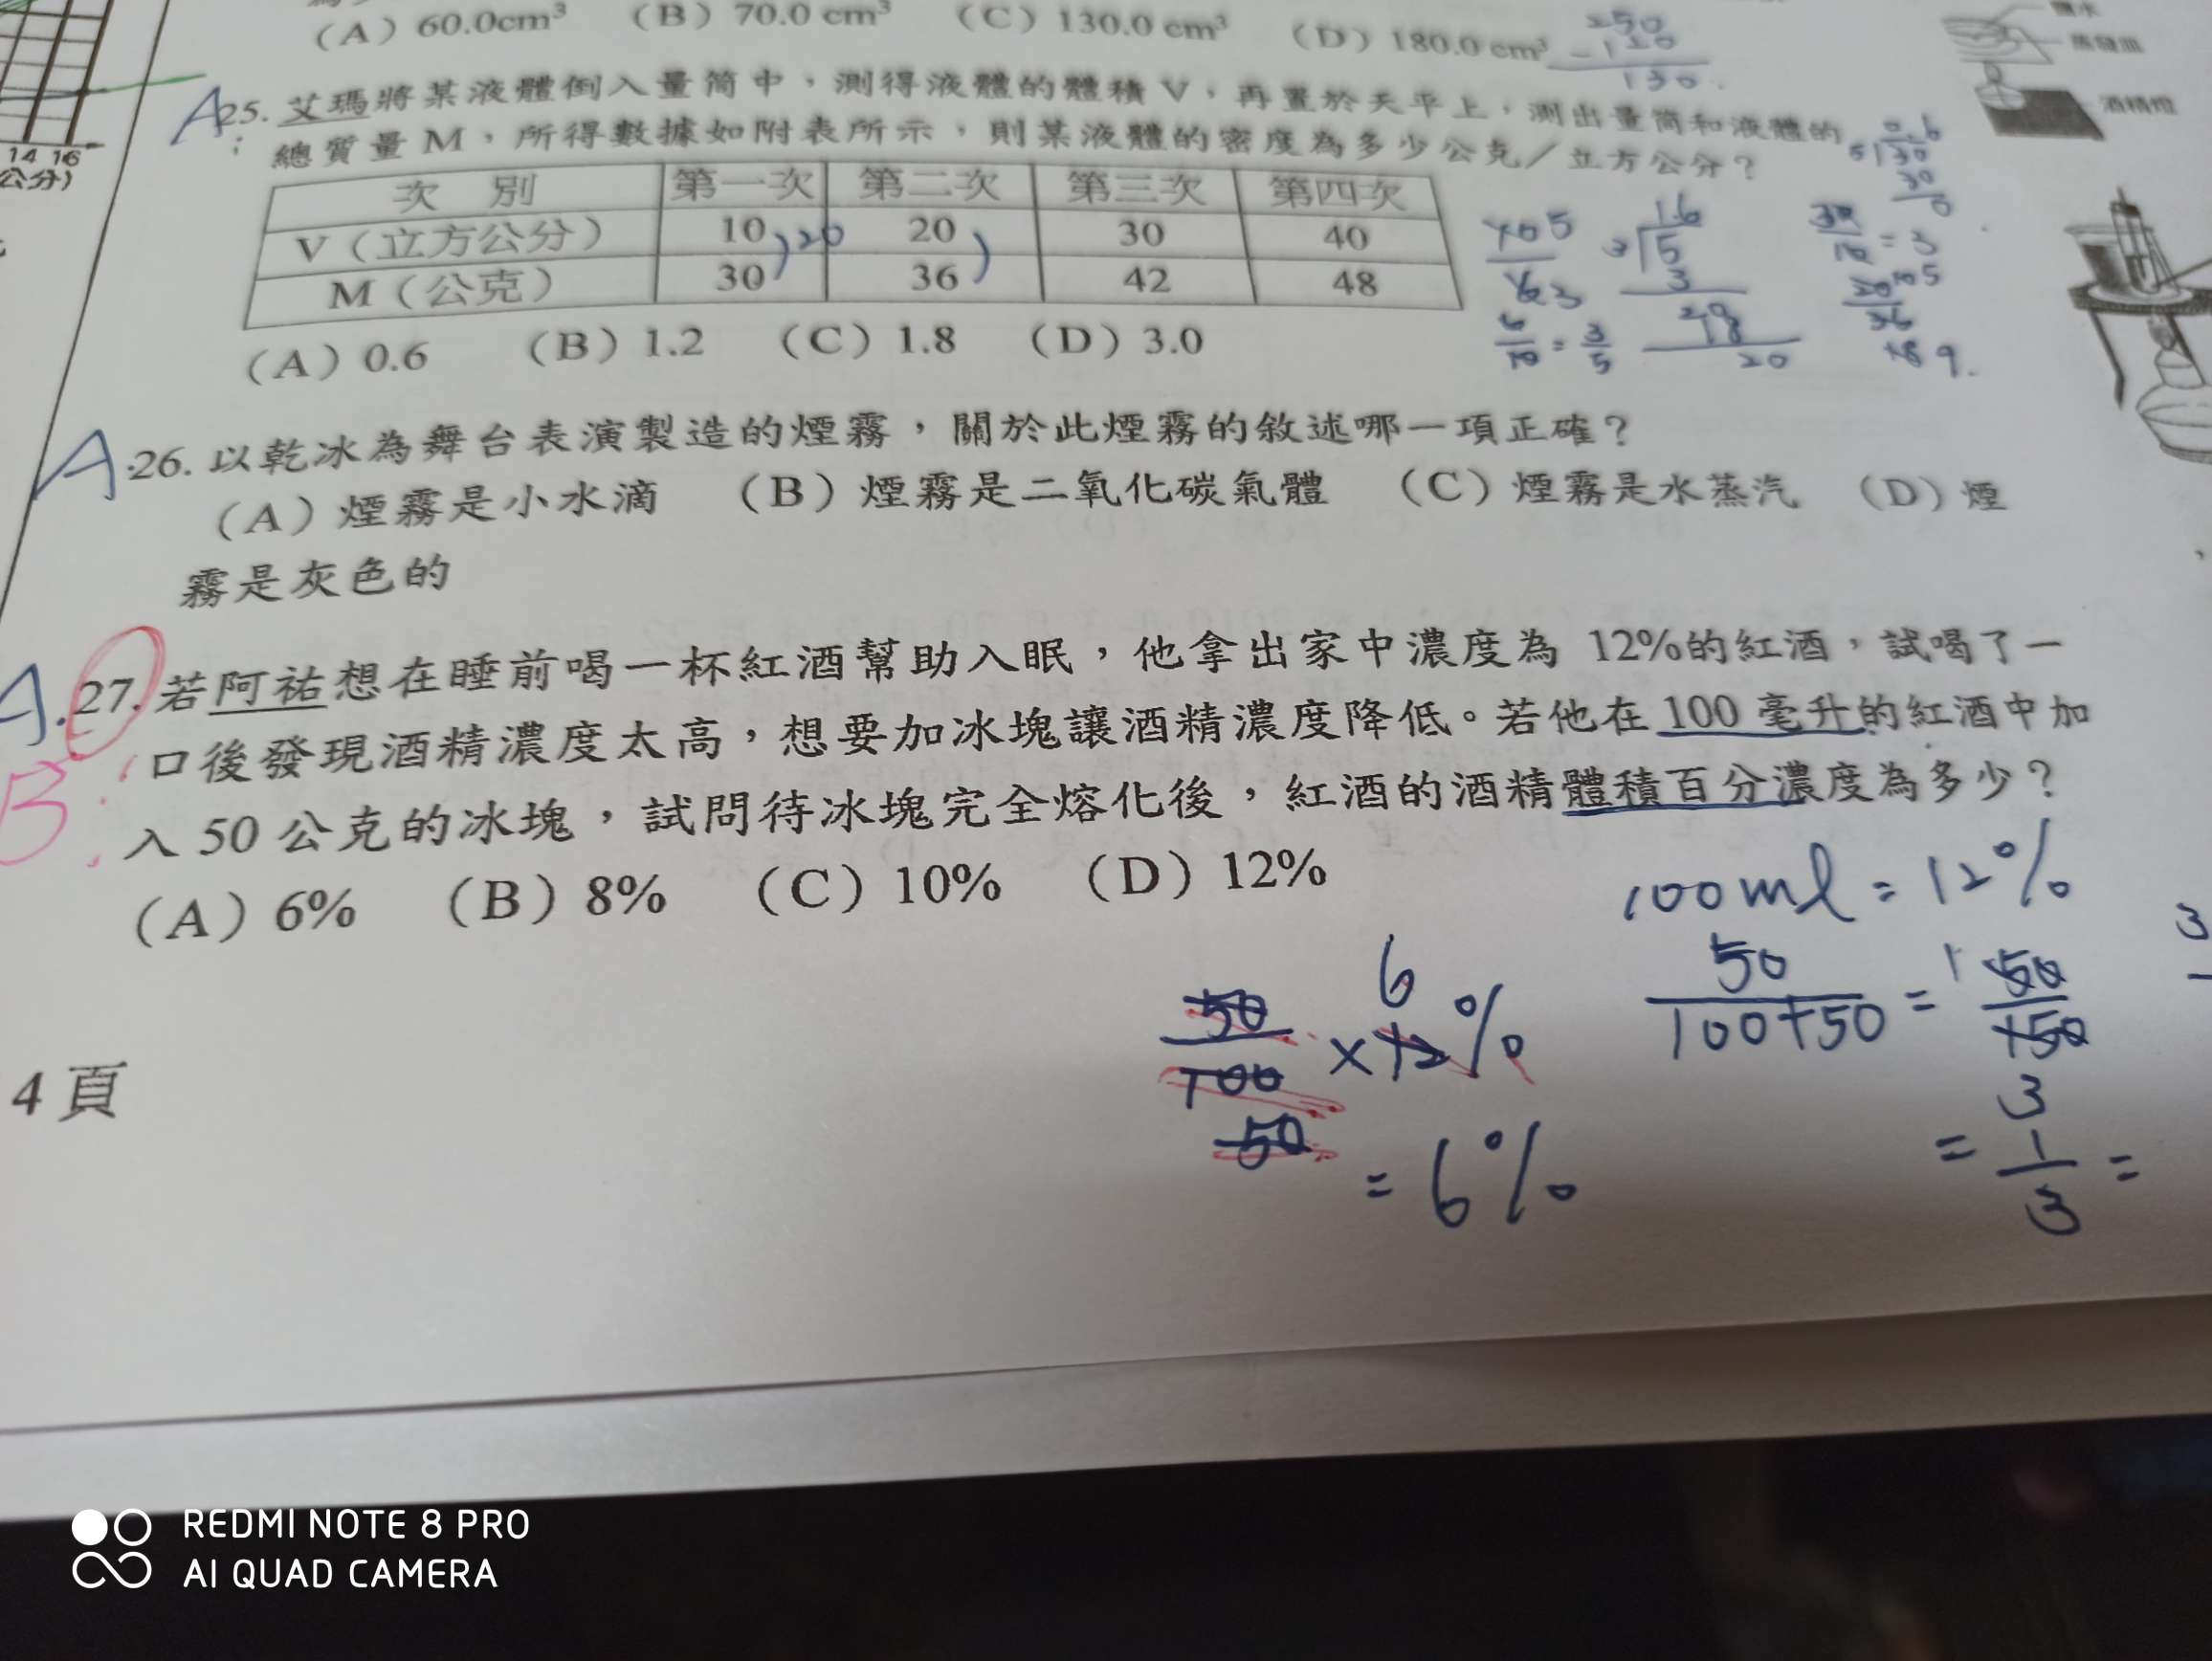 (A) 60.0cm³ (B) 70.0 cm³ (C) 130.0 cm³ (D) 180.0 cm³
130
14 16
公分)
A25. 艾瑪將某液體倒入量筒中,測得液體的體積 V,再置於天平上,測出量筒和液體的
總質量 M,所得數據如附表所示,則某液體的密度為多少公克/立方公分?
次 別 第一次 第二次 第三次 第四次
V(立方公分) 10 20 30 40
M(公克) 30 36 42 48
20
(A) 0.6 (B) 1.2 (C) 1.8 (D) 3.0
6/10 = 3/5
酒精燈
A 26. 以乾冰為舞台表演製造的煙霧,關於此煙霧的敘述哪一項正確?
(A) 煙霧是小水滴 (B) 煙霧是二氧化碳氣體 (C) 煙霧是水蒸汽 (D) 煙
霧是灰色的
A. 27. 若阿祐想在睡前喝一杯紅酒幫助入眠,他拿出家中濃度為 12%的紅酒,試喝了一
口後發現酒精濃度太高,想要加冰塊讓酒精濃度降低。若他在 100 毫升的紅酒中加
B
入 50 公克的冰塊,試問待冰塊完全熔化後,紅酒的酒精體積百分濃度為多少?
(A) 6% (B) 8% (C) 10% (D) 12%
100ml = 12%
50/100+50 = 50/150
3
= 1/3 =
50/100 × 12%
6
50
= 6%
4 頁
REDMI NOTE 8 PRO
AI QUAD CAMERA